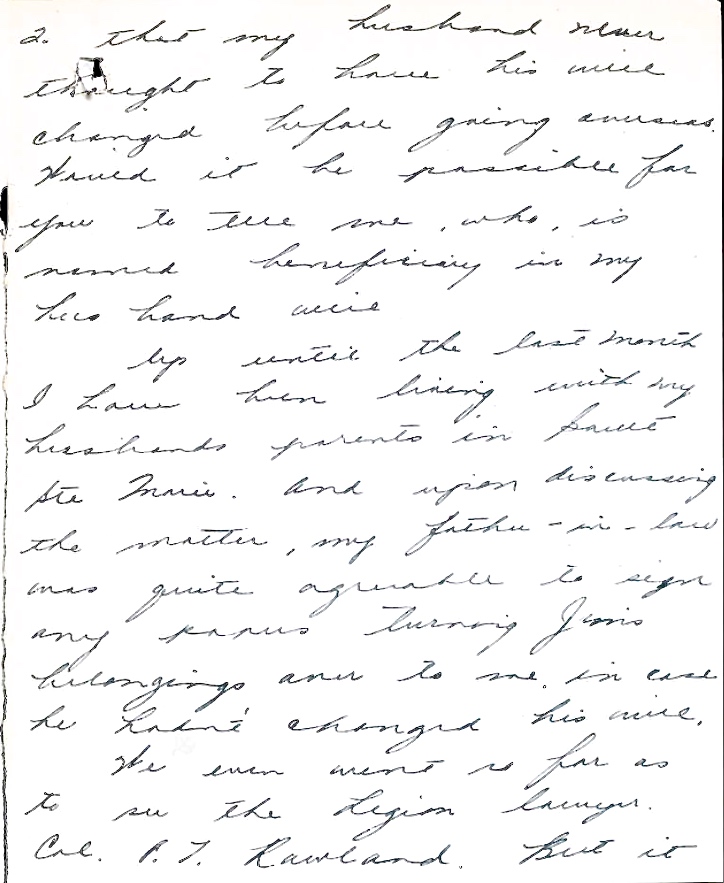 2. that my husband never
thought to have his will
changed before going overseas.
Would it be possible for
you to tell me, who, is
named beneficiary in my
husband will
Up until the last month
I have been living with my
husbands parents in Sault
Ste Marie. And upon discussing
the matter, my father-in-law
was quite agreeable to sign
any papers turning Jims
belongings over to me, in case
he hadn't changed his will.
We even went so far as
to see the Legion lawyer.
Col. P. T. Rowland. But it